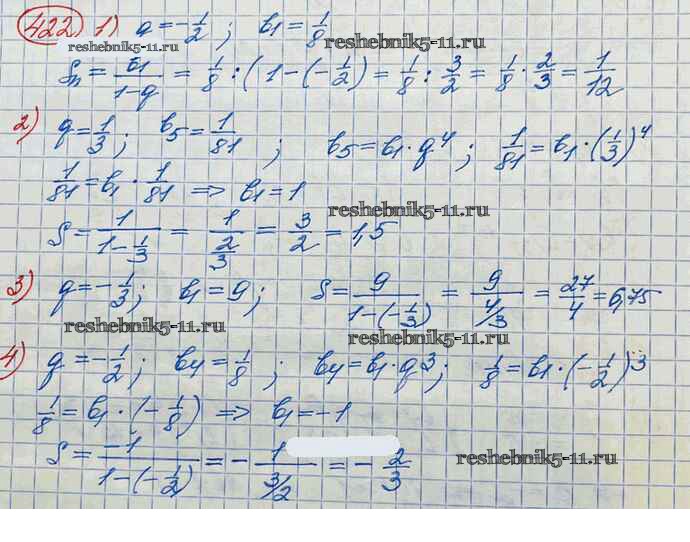 422) 1) q = -1/2 ; b₁ = 1/8
reshebnik5-11.ru reshebnik5-11.ru
Sn = b₁/(1-q) = 1/8 : (1-(-1/2) = 1/8 : 3/2 = 1/8 · 2/3 = 1/12
2) q = 1/3 ; b₅ = 1/81 ; b₅ = b₁ · q⁴ ; 1/81 = b₁ · (1/3)⁴
1/81 = b₁ · 1/81 => b₁ = 1
reshebnik5-11.ru
S = 1/(1-1/3) = 1/(2/3) = 3/2 = 1,5
3) q = -1/3 ; b₁ = 9 ; S = 9/(1-(-1/3)) = 9/(4/3) = 27/4 = 6,75
reshebnik5-11.ru reshebnik5-11.ru
4) q = -1/2 ; b₄ = 1/8 ; b₄ = b₁ · q³ ; 1/8 = b₁ · (-1/2)³
1/8 = b₁ · (-1/8) => b₁ = -1
S = -1/(1-(-1/2)) = - 1/(3/2) = - 2/3
reshebnik5-11.ru